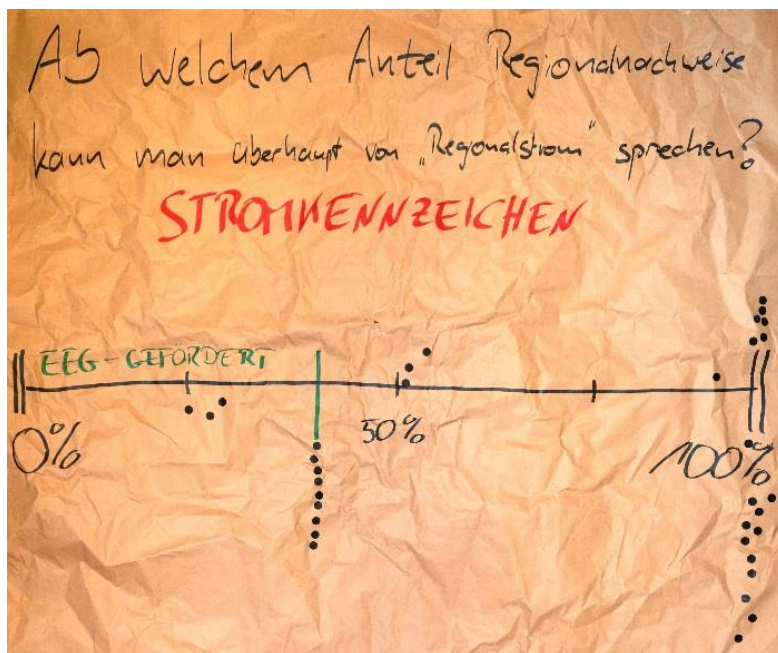 Ab welchem Anteil Regionalnachweise
kann man überhaupt von „Regionalstrom“ sprechen?
STROMKENNZEICHEN
EEG-GEFÖRDERT
0%
50%
100%